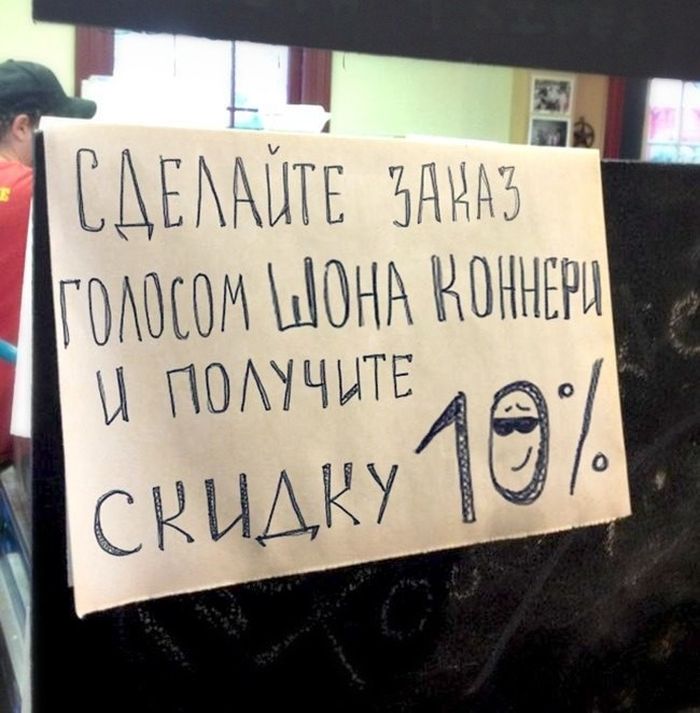 СДЕЛАЙТЕ ЗАКАЗ
ГОЛОСОМ ШОНА КОННЕРИ
И ПОЛУЧИТЕ
СКИДКУ 10%